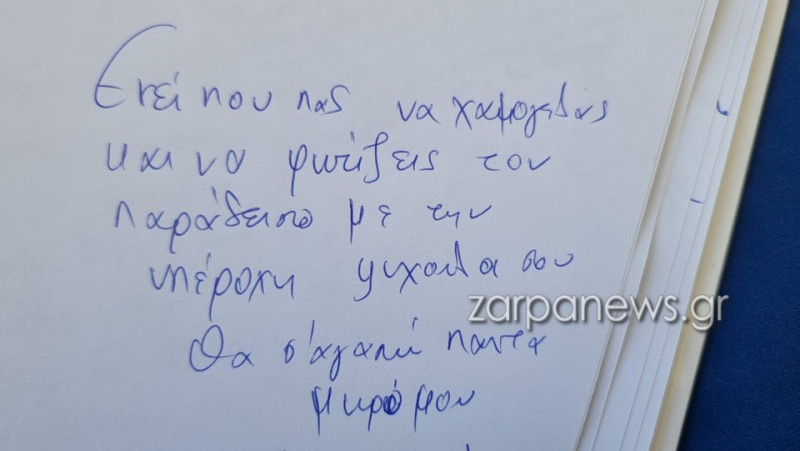 Εκεί που πας να χαμογελάς
και να φωτίζεις τον
παράδεισο με την
υπέροχη ψυχούλα σου
zarpanews.gr
Θα σ'αγαπώ παντα
μικρό μου